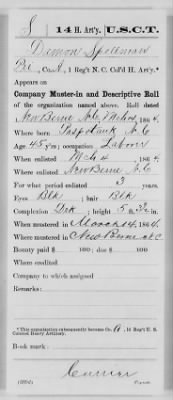 S | 14 H. Art'y. | U.S.C.T.
Demon Spellman
Pvt, Co. A, 1 Reg't N. C. Col'd H. Art'y.*
Appears on
Company Muster-in and Descriptive Roll
of the organization named above. Roll dated
New Berne N.C. Mch 14, 1864.
Where born Pasquotank N.C.
Age 45 y'rs; occupation Laborer
When enlisted Mch 4, 1864.
Where enlisted New Berne N.C.
For what period enlisted 3 years.
Eyes Blk; hair Blk
Complexion Drk; height 5 ft. in.
When mustered in March 14, 1864.
Where mustered in New Berne N.C.
Bounty paid $ 100; due $ 100
Where credited
Company to which assigned
Remarks:
*This organization subsequently became Co. A, 14 Reg't U. S. Colored Heavy Artillery.
Book mark:
Currier
Copyist.